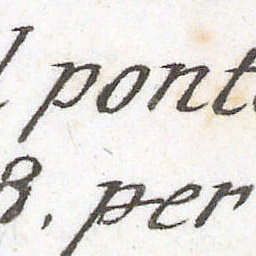 l pont
8. per